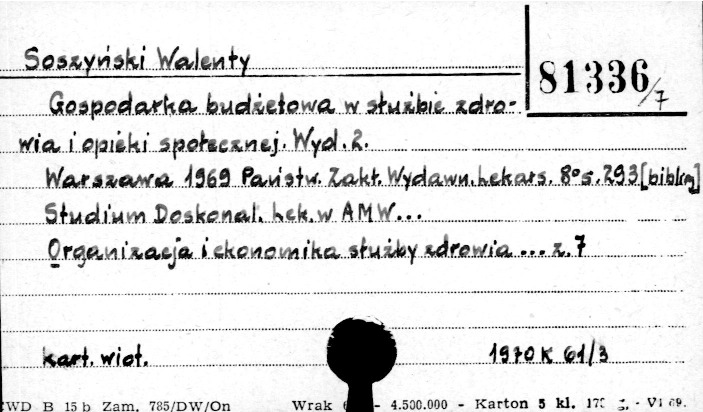 Soszyński Walenty
81336/7
Gospodarka budżetowa w służbie zdro-
wia i opieki społecznej. Wyd. 2.
Warszawa 1969 Państw. Zakł. Wydawn. Lekars. 8° s. 293 [bibliog]
Studium Doskonal. Lek. w AMW...
Organizacja i ekonomika służby zdrowia ... z. 7
kart. wiot.
1970 K 61/3
CWD B 15 b Zam. 785/DW/On
Wrak - 4.500.000 - Karton 5 kl. 170 g. - VI 69.